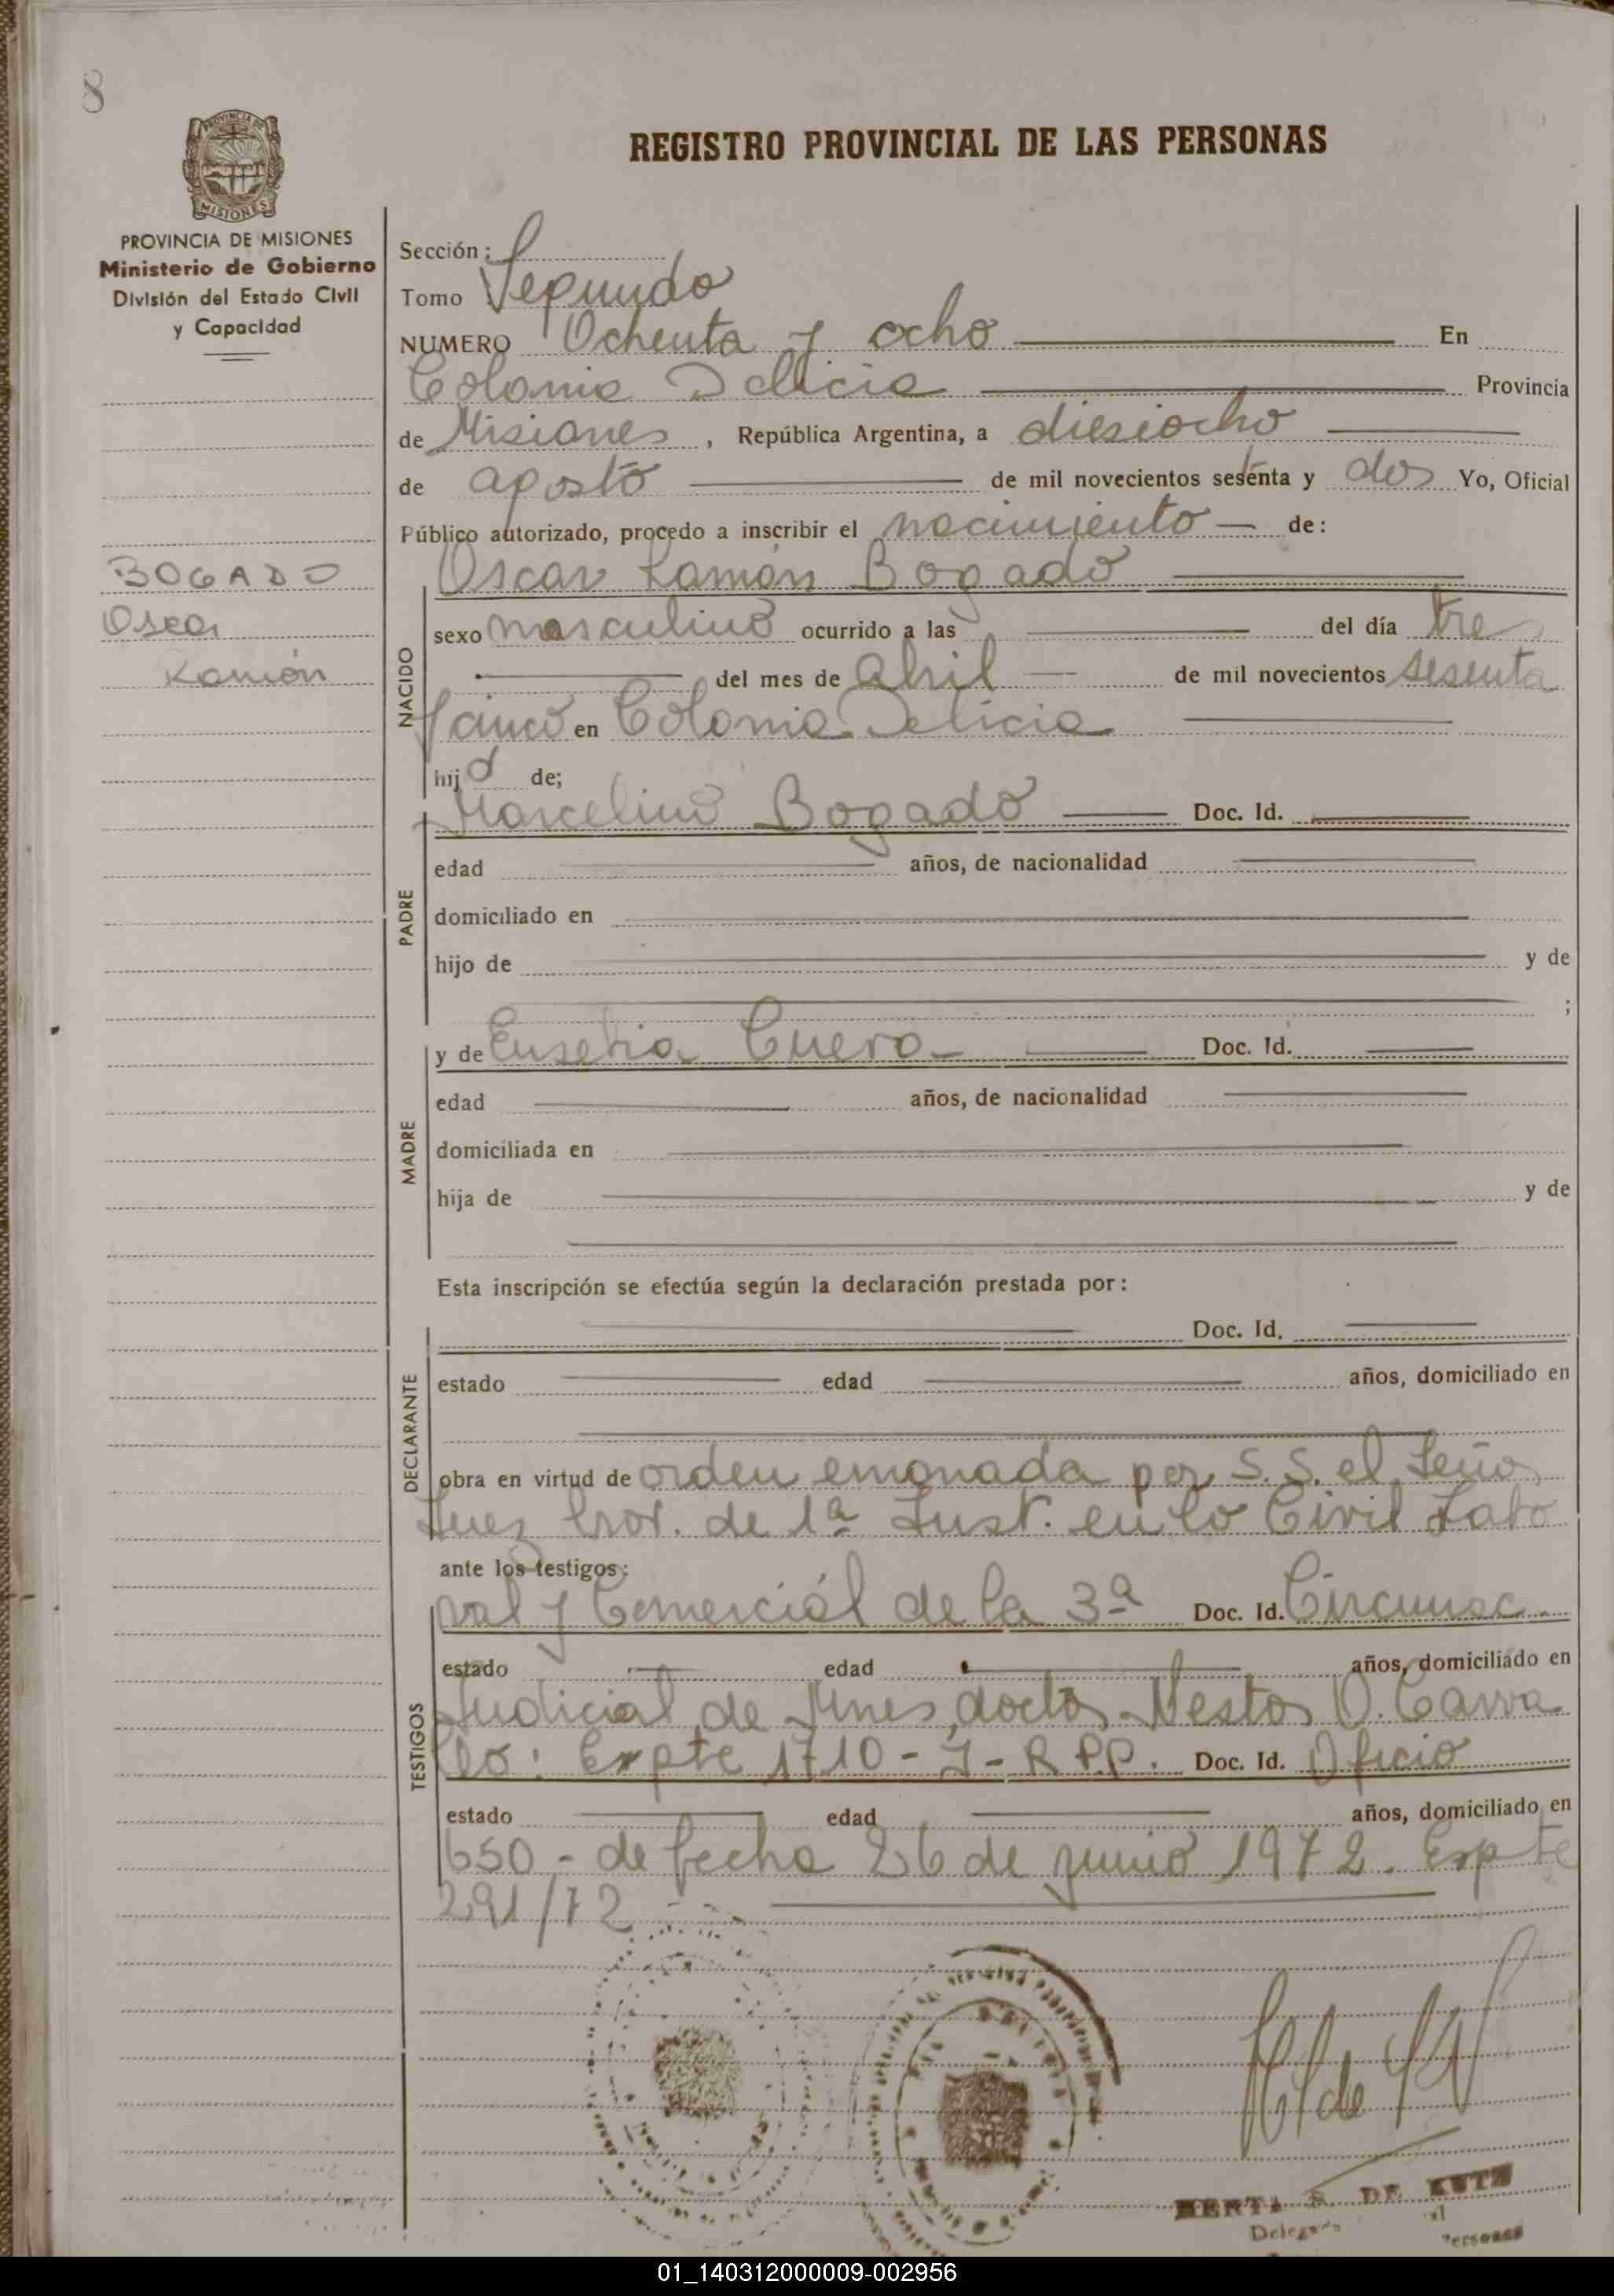 8
PROVINCIA DE MISIONES
REGISTRO PROVINCIAL DE LAS PERSONAS
PROVINCIA DE MISIONES
Ministerio de Gobierno
División del Estado Civil
y Capacidad
Sección:
Tomo Segundo
NUMERO Ochenta y ocho En
Colonia Delicia Provincia
de Misiones, República Argentina, a diesiocho
de agosto de mil novecientos sesenta y dos Yo, Oficial
Público autorizado, procedo a inscribir el nacimiento de:
BOGADO
Oscar
Ramón
NACIDO
Oscar Ramón Bogado
sexo masculino ocurrido a las del día tres
del mes de Abril de mil novecientos sesenta
y cinco en Colonia Delicia
hijo de;
PADRE
Marcelino Bogado Doc. Id.
edad años, de nacionalidad
domiciliado en
hijo de y de
;
MADRE
y de Eusebia Cuero Doc. Id.
edad años, de nacionalidad
domiciliada en
hija de y de
Esta inscripción se efectúa según la declaración prestada por:
DECLARANTE
Doc. Id.
estado edad años, domiciliado en
obra en virtud de orden emanada por S.S. el Señor
Juez de 1ª Inst. en lo Civil Labo
ante los testigos:
TESTIGOS
ral y Comerciál de la 3ª Doc. Id. Circunsc.
estado edad años, domiciliado en
Judicial de doctor Nestor O. Carva
llo: Expte 1710-J-RPP. Doc. Id. Oficio
estado edad años, domiciliado en
650 - de fecha 26 de junio 1972. Expte
291/72
HERTA DE KUTZ
Delega
Personas
01_140312000009-002956